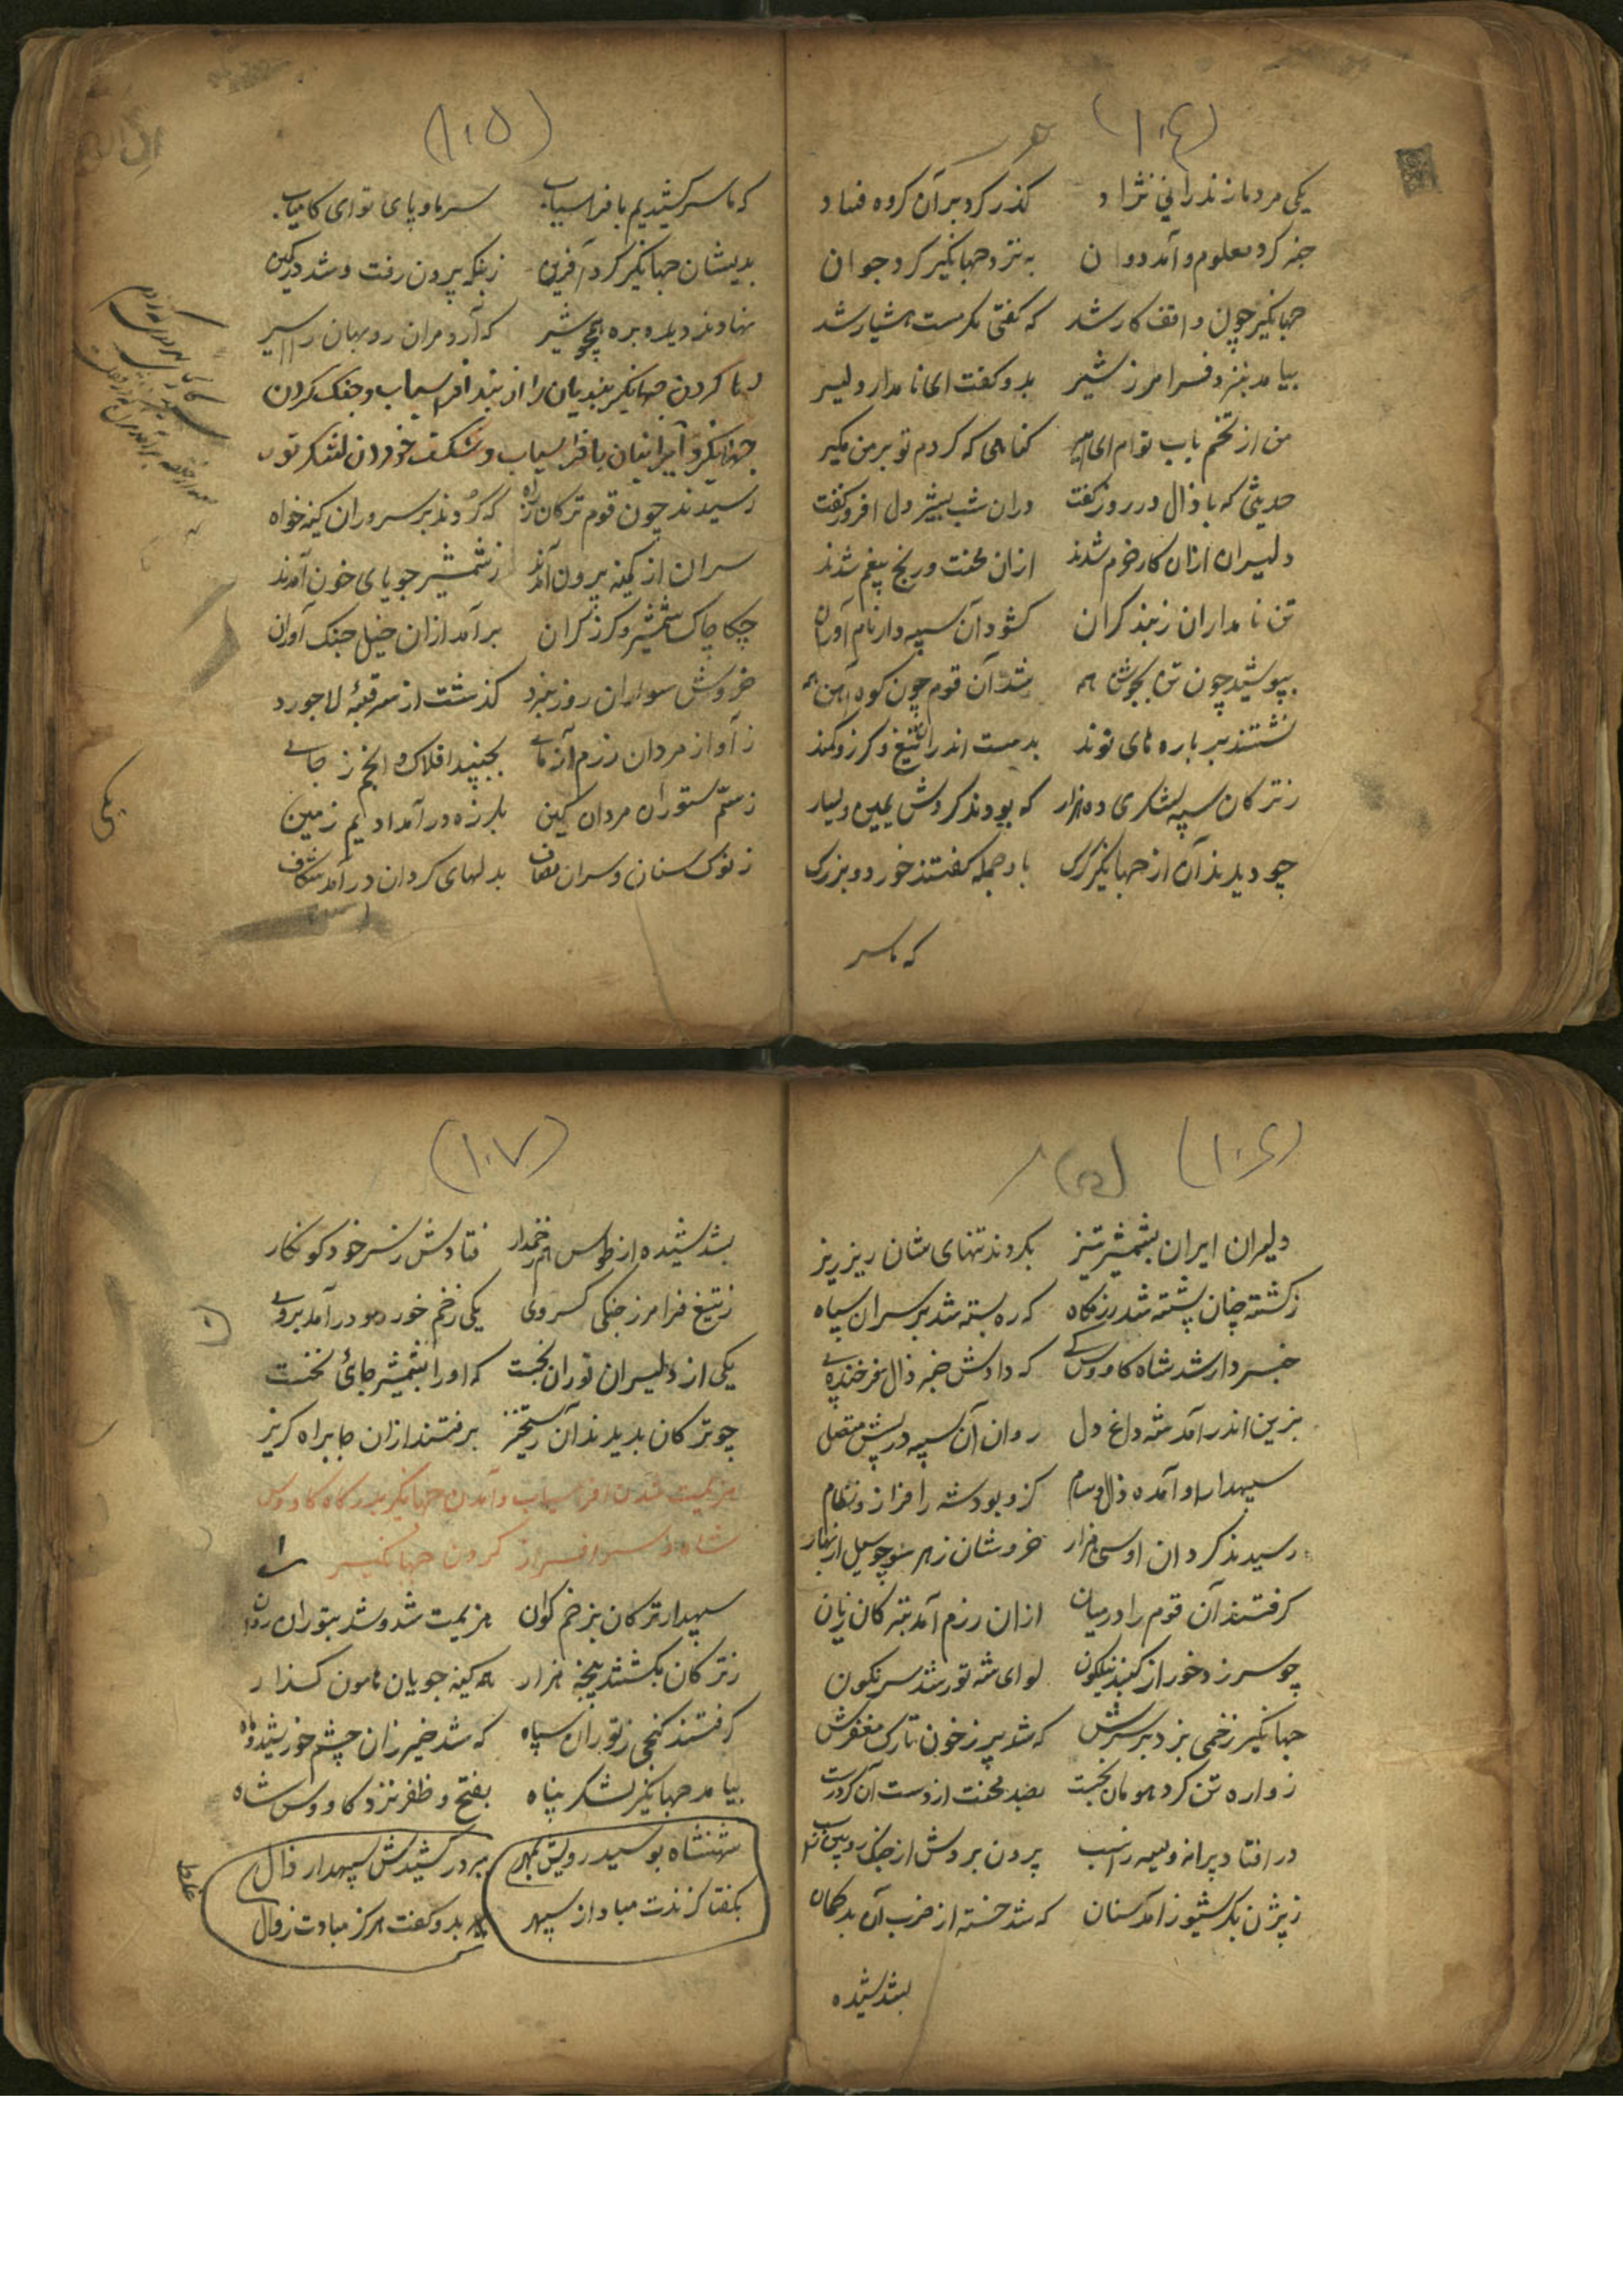 (۱۰۴)
یکی مرد مازندرانی نژاد گذر کرد بر آن گروه فتاد
خبر کرد معلوم و آمد دوان به نزد جهانگیر گرد جوان
جهانگیر چون واقف کار شد که گفتی مگر مست هشیار شد
بیامد بنزد فرامرز شیر بدو گفت ای نامدار دلیر
من از تخم باب توام ای امیر گناهی که کردم تو بر من مگیر
حدیثی که با زال در روز گفت در آن شب به پیش دل افروز گفت
دلیران از آن کار خرم شدند از آن محنت و رنج بیغم شدند
تن نامداران ز بند گران گشود آن سپهدار نام آوران
بپوشید چون تن بجوشن همه شد آن قوم چون کوه آهن همه
نشستند بر باره های نوند بدست اندران تیغ و گرز و کمند
ز ترکان سپه لشکری ده هزار که بودند گردش یمین و یسار
چو دیدند آن از جهانگیر گرگ با و جمله گفتند خورد و بزرگ
که ما سر
(۱۰۵)
که ما سر کشیدیم با فراسیاب سر ما و پای تو ای کامیاب
بدیشان جهانگیر کرد آفرین ز بنگه برون رفت و شد در کمین
نهادند دیده بره همچو شیر که آرد مران روبهان را اسیر
رها کردن جهانگیر بندیان را از بند افراسیاب و جنگ کردن
جهانگیر و ایرانیان با افراسیاب و شکست خوردن لشکر توران
رسیدند چون قوم ترکان ز راه که گردند بر سروران کینه خواه
سران از کمینه برون آمدند ز شمشیر جویای خون آمدند
چکاچاک شمشیر و گرز گران برآمد از آن خیل جنگ آوران
خروش سواران روز نبرد گذشت از سر قبهٔ لاجورد
ز آواز مردان رزم آزمای بجنبید افلاک و انجم ز جای
ز سم ستوران مردان کین بلرزه درآمد ادیم زمین
ز نوک سنان و سران مصاف بدلهای گردان درآمد شکاف
یکی
(۱۰۶)
دلیران ایران بشمشیر تیز بکردند تنهای شان ریز ریز
ز کشته چنان پشته شد رزمگاه که ره بسته شد بر سران سپاه
خبردار شد شاه کاوس کی که دادش خبر زال فرخنده پی
بزین اندر آمد شه داغ دل روان آن سپه در پیش متصل
سپهدار او آمده زال و سام کزو بود شه را فراز و نظام
رسیدند گردان او سی هزار خروشان ز هر سو چو سیل از بهار
گرفتند آن قوم را در میان از آن رزم آمد بترکان زیان
چو سر زد خور از گنبد نیلگون لوای شه تور شد سرنگون
جهانگیر زخمی بزد بر سرش که شد پر ز خون تارک مغفرش
زواره تن گرد هومان بخست بصد محنت از دست آن گرد رست
در افتاد پیرانه ویسه ز اسب برون بردش از جنگ رویین
ز بیژن بگرسیوز آمد سنان که شد خسته از ضرب آن بدگمان
بشد شیده
(۱۰۷)
بشد شیده از طوس هم زخمدار فتادش ز سر خود گوهر نگار
ز تیغ فرامرز جنگی گروی یکی زخم خورد و درآمد بروی
یکی از دلیران توران نجست که او را بشمشیر جائی نخست
چو ترکان بدیدند آن رستخیز برفتند از آن جا براه گریز
هزیمت شدن افراسیاب و آمدن جهانگیر بدرگاه کاووس
شاه و سرافراز کردن جهانگیر
سپهدار ترکان بزخم گران هزیمت شد و شد بتوران روان
ز ترکان بکشتند پنجه هزار همه کینه جویان هامون گذار
گرفتند گنجی ز توران سپاه که شد خیره زان چشم خورشید و ماه
بیامد جهانگیر لشکر پناه بفتح و ظفر نزد کاووس شاه
شهنشاه بوسید رویش بمهر ببر در کشیدش سپهدار زال
بگفتا گزندت مباد از سپهر بدو گفت هرگز مبادت زوال